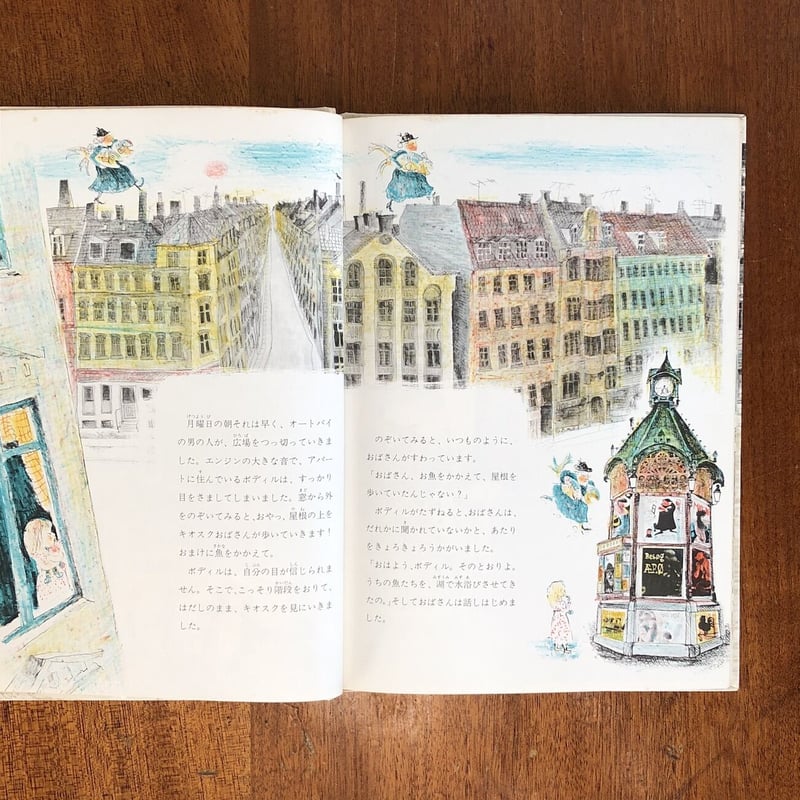 月曜日の朝それは早く、オートバイ
の男の人が、広場をつっ切っていきま
した。エンジンの大きな音で、アパー
トに住んでいるボディルは、すっかり
目をさましてしまいました。窓から外
をのぞいてみると、おやっ、屋根の上を
キオスクおばさんが歩いていきます！
おまけに魚をかかえて。
ボディルは、自分の目が信じられま
せん。そこで、こっそり階段をおりて、
はだしのまま、キオスクを見にいきま
した。
のぞいてみると、いつものように、
おばさんがすわっています。
「おばさん、お魚をかかえて、屋根を
歩いていたんじゃない？」
ボディルがたずねると、おばさんは、
だれかに聞かれていないかと、あたり
をきょろきょろうかがいました。
「おはよう、ボディル。そのとおりよ。
うちの魚たちを、湖で水浴びさせてき
たの。」そしておばさんは話しはじめま
した。